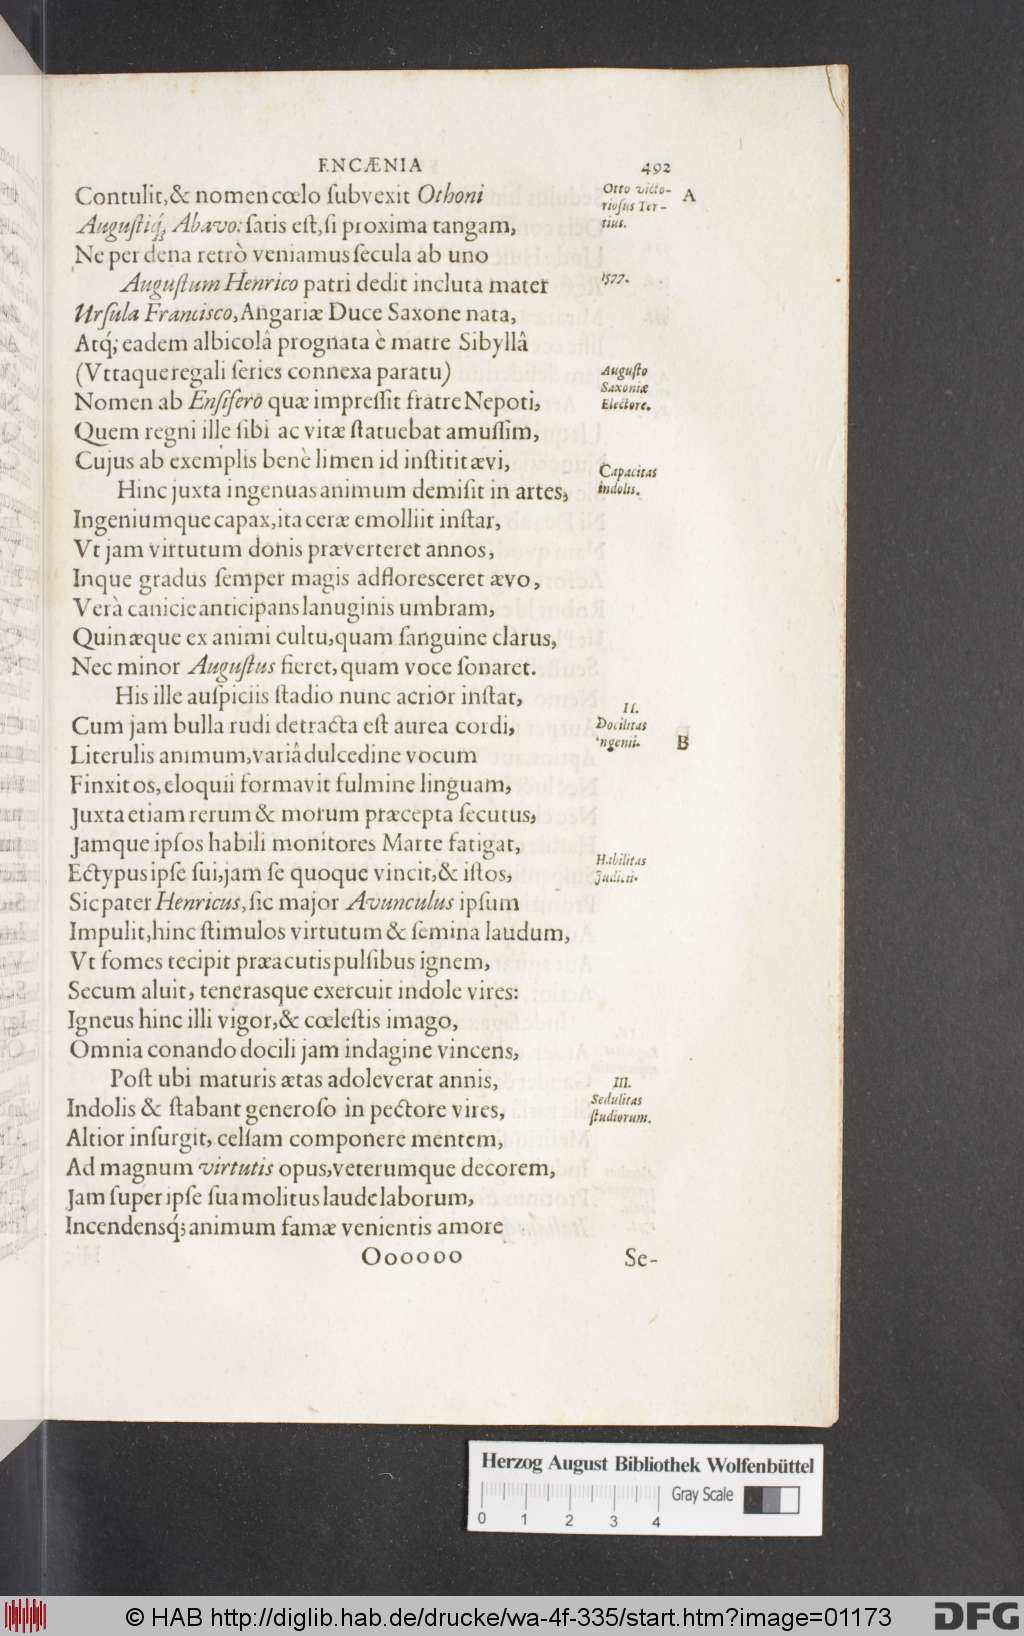 ENCÆNIA 492
Contulit,& nomen cœlo ſubvexit Othoni
Otto victo-
rioſus Ter-
tius.
A
Auguſtiq́; Abavo: ſatis eſt,ſi proxima tangam,
Ne per dena retrò veniamus ſecula ab uno
Auguſtum Henrico patri dedit incluta mater
1577.
Urſula Franciſco,Angariæ Duce Saxone nata,
Atq́; eadem albicolâ prognata è matre Sibyllâ
(Vttaque regali ſeries connexa paratu)
Auguſto
Saxoniæ
Electore.
Nomen ab Enſiferò quæ impreſſit fratre Nepoti,
Quem regni ille ſibi ac vitæ ſtatuebat amuſſim,
Cujus ab exemplis benè limen id inſtitit ævi,
Capacitas
indolis.
Hinc juxta ingenuas animum demiſit in artes,
Ingeniumque capax,ita ceræ emolliit inſtar,
Vt jam virtutum donis præverteret annos,
Inque gradus ſemper magis adfloresceret ævo,
Verà canicie anticipans lanuginis umbram,
Quinæque ex animi cultu,quam ſanguine clarus,
Nec minor Auguſtus fieret,quam voce ſonaret.
His ille auſpiciis ſtadio nunc acrior inſtat,
II.
Docilitas
ingenii.
B
Cum jam bulla rudi detracta eſt aurea cordi,
Literulis animum,variâ dulcedine vocum
Finxit os,eloquii formavit fulmine linguam,
Juxta etiam rerum & morum præcepta ſecutus,
Jamque ipſos habili monitores Marte fatigat,
Habilitas
Judicii.
Ectypus ipſe ſui,jam ſe quoque vincit,& iſtos,
Sic pater Henricus,ſic major Avunculus ipſum
Impulit,hinc ſtimulos virtutum & ſemina laudum,
Vt fomes recipit præacutis pulſibus ignem,
Secum aluit, tenerasque exercuit indole vires:
Igneus hinc illi vigor,& cœleſtis imago,
Omnia conando docili jam indagine vincens,
Poſt ubi maturis ætas adoleverat annis,
III.
Sedulitas
ſtudiorum.
Indolis & ſtabant generoſo in pectore vires,
Altior inſurgit, celſam componere mentem,
Ad magnum virtutis opus,veterumque decorem,
Jam ſuper ipſe ſua molitus laude laborum,
Incendensq́; animum famæ venientis amore
Oooooo Se-
Herzog August Bibliothek Wolfenbüttel
Gray Scale
0 1 2 3 4
© HAB http://diglib.hab.de/drucke/wa-4f-335/start.htm?image=01173
DFG